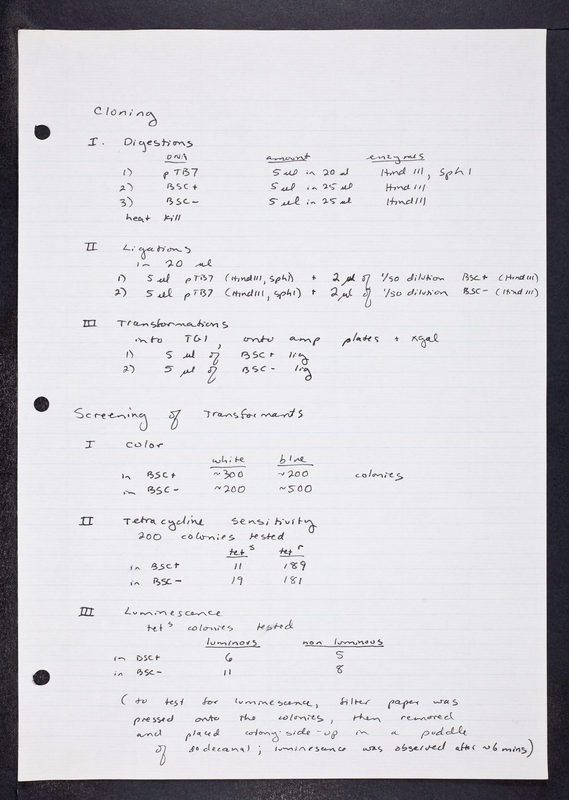 Cloning
I. Digestions
DNA amount enzymes
1) pTB7 5 ul in 20 ul Hind III, Sph I
2) BSC+ 5 ul in 25 ul Hind III
3) BSC- 5 ul in 25 ul Hind III
heat kill
II Ligations
in 20 ul
1) 5 ul pTB7 (Hind III, Sph I) + 2 ul of 1/50 dilution BSC+ (Hind III)
2) 5 ul pTB7 (Hind III, Sph I) + 2 ul of 1/50 dilution BSC- (Hind III)
III Transformations
into TG1, onto amp plates + xgal
1) 5 ul of BSC+ lig
2) 5 ul of BSC- lig
Screening of Transformants
I Color
white blue
in BSC+ ~300 ~200 colonies
in BSC- ~200 ~500
II Tetracycline Sensitivity
200 colonies tested
tet s tet r
in BSC+ 11 189
in BSC- 19 181
III Luminescence
tet s colonies tested
luminous non luminous
in BSC+ 6 5
in BSC- 11 8
(to test for luminescence, filter paper was
pressed onto the colonies, then removed
and placed colony-side-up in a puddle
of dodecanal; luminescence was observed after ~6 mins)